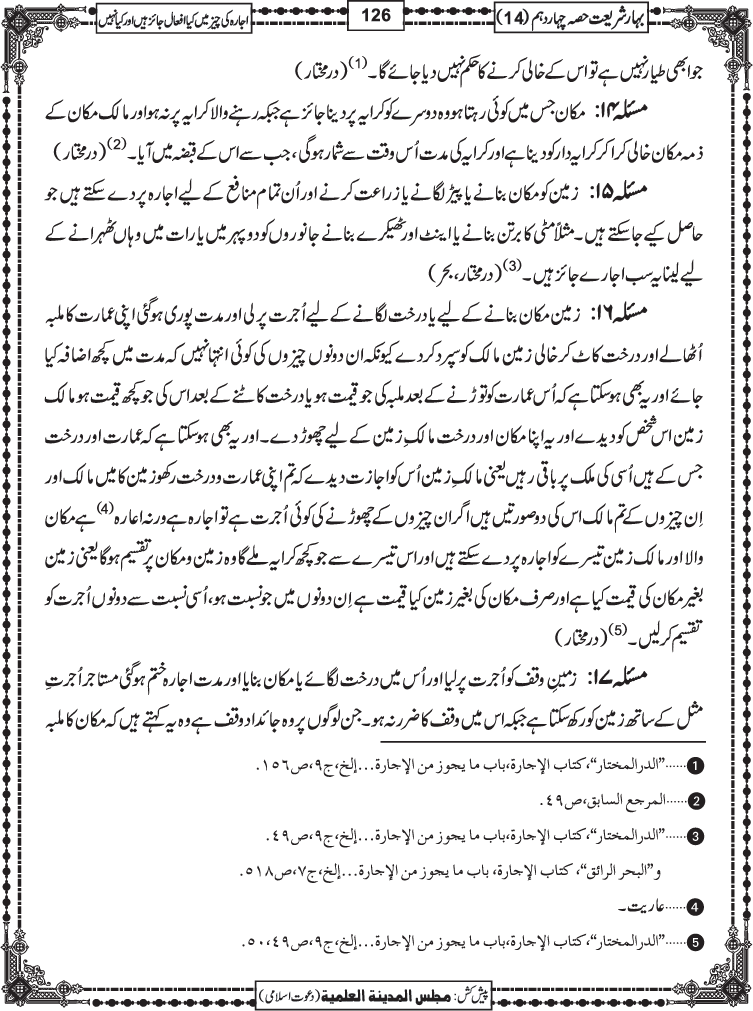 بہارِ شریعت حصہ چہاردہم (14)
126
اجارہ کی چیز میں کیا افعال جائز ہیں اور کیا نہیں
جو ابھی طیار نہیں ہے تو اس کے خالی کرنے کا حکم نہیں دیا جائے گا۔(1) (درمختار)
مسئلہ ۱۴: مکان جس میں کوئی رہتا ہو وہ دوسرے کو کرایہ پر دینا جائز ہے جبکہ رہنے والا کرایہ پر نہ ہو اور مالک مکان کے
ذمہ مکان خالی کرا کر کرایہ دار کو دینا ہے اور کرایہ کی مدت اُس وقت سے شمار ہوگی، جب سے اس کے قبضہ میں آیا۔(2) (درمختار)
مسئلہ ۱۵: زمین کو مکان بنانے یا پیڑ لگانے یا زراعت کرنے اور اُن تمام منافع کے لیے اجارہ پر دے سکتے ہیں جو
حاصل کیے جاسکتے ہیں۔ مثلاً مٹی کا برتن بنانے یا اینٹ اور ٹھیکرے بنانے جانوروں کو دوپہر میں یا رات میں وہاں ٹھہرانے کے
لیے لینا یہ سب اجارے جائز ہیں۔(3) (درمختار، بحر)
مسئلہ ۱۶: زمین مکان بنانے کے لیے یا درخت لگانے کے لیے اُجرت پر لی اور مدت پوری ہوگئی اپنی عمارت کا ملبہ
اُٹھالے اور درخت کاٹ کر خالی زمین مالک کو سپرد کردے کیونکہ ان دونوں چیزوں کی کوئی انتہا نہیں کہ مدت میں کچھ اضافہ کیا
جائے اور یہ بھی ہوسکتا ہے کہ اُس عمارت کو توڑنے کے بعد ملبہ کی جو قیمت ہو یا درخت کاٹنے کے بعد اس کی جو کچھ قیمت ہو مالک
زمین اس شخص کو دیدے اور یہ اپنا مکان اور درخت مالکِ زمین کے لیے چھوڑ دے۔ اور یہ بھی ہوسکتا ہے کہ عمارت اور درخت
جس کے ہیں اُسی کی ملک پر باقی رہیں یعنی مالکِ زمین اُس کو اجازت دیدے کہ تم اپنی عمارت و درخت رکھو زمین کا میں مالک اور
اِن چیزوں کے تم مالک اس کی دو صورتیں ہیں اگر ان چیزوں کے چھوڑنے کی کوئی اُجرت ہے تو اجارہ ہے ورنہ اعارہ(4) ہے مکان
والا اور مالک زمین تیسرے کو اجارہ پر دے سکتے ہیں اور اس تیسرے سے جو کچھ کرایہ ملے گا وہ زمین و مکان پر تقسیم ہوگا یعنی زمین
بغیر مکان کی قیمت کیا ہے اور صرف مکان کی بغیر زمین کیا قیمت ہے اِن دونوں میں جو نسبت ہو، اُسی نسبت سے دونوں اُجرت کو
تقسیم کرلیں۔(5) (درمختار)
مسئلہ ۱۷: زمینِ وقف کو اُجرت پر لیا اور اُس میں درخت لگائے یا مکان بنایا اور مدت اجارہ ختم ہوگئی مستاجر اُجرتِ
مثل کے ساتھ زمین کو رکھ سکتا ہے جبکہ اس میں وقف کا ضرر نہ ہو۔ جن لوگوں پر وہ جائداد وقف ہے وہ یہ کہتے ہیں کہ مکان کا ملبہ
1 ......"الدرالمختار"،کتاب الإجارة،باب ما يجوز من الإجارة...إلخ،ج۹،ص۱۵۶.
2 ......المرجع السابق،ص۴۹.
3 ......"الدرالمختار"،کتاب الإجارة،باب ما يجوز من الإجارة...إلخ،ج۹،ص۴۹.
و"البحر الرائق"، کتاب الإجارة، باب ما يجوز من الإجارة...إلخ،ج۷،ص۵۱۸.
4 ......عاریت۔
5 ......"الدرالمختار"،کتاب الإجارة،باب ما يجوز من الإجارة...إلخ،ج۹،ص۵۰،۴۹.
پیش کش: مجلس المدينة العلمية (دعوت اسلامی)